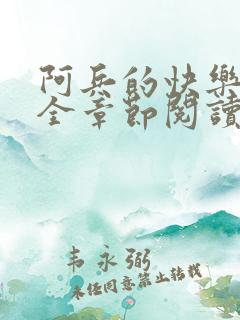 阿兵的快樂
全章節閱讀
韦永弼
未经同意禁止转载